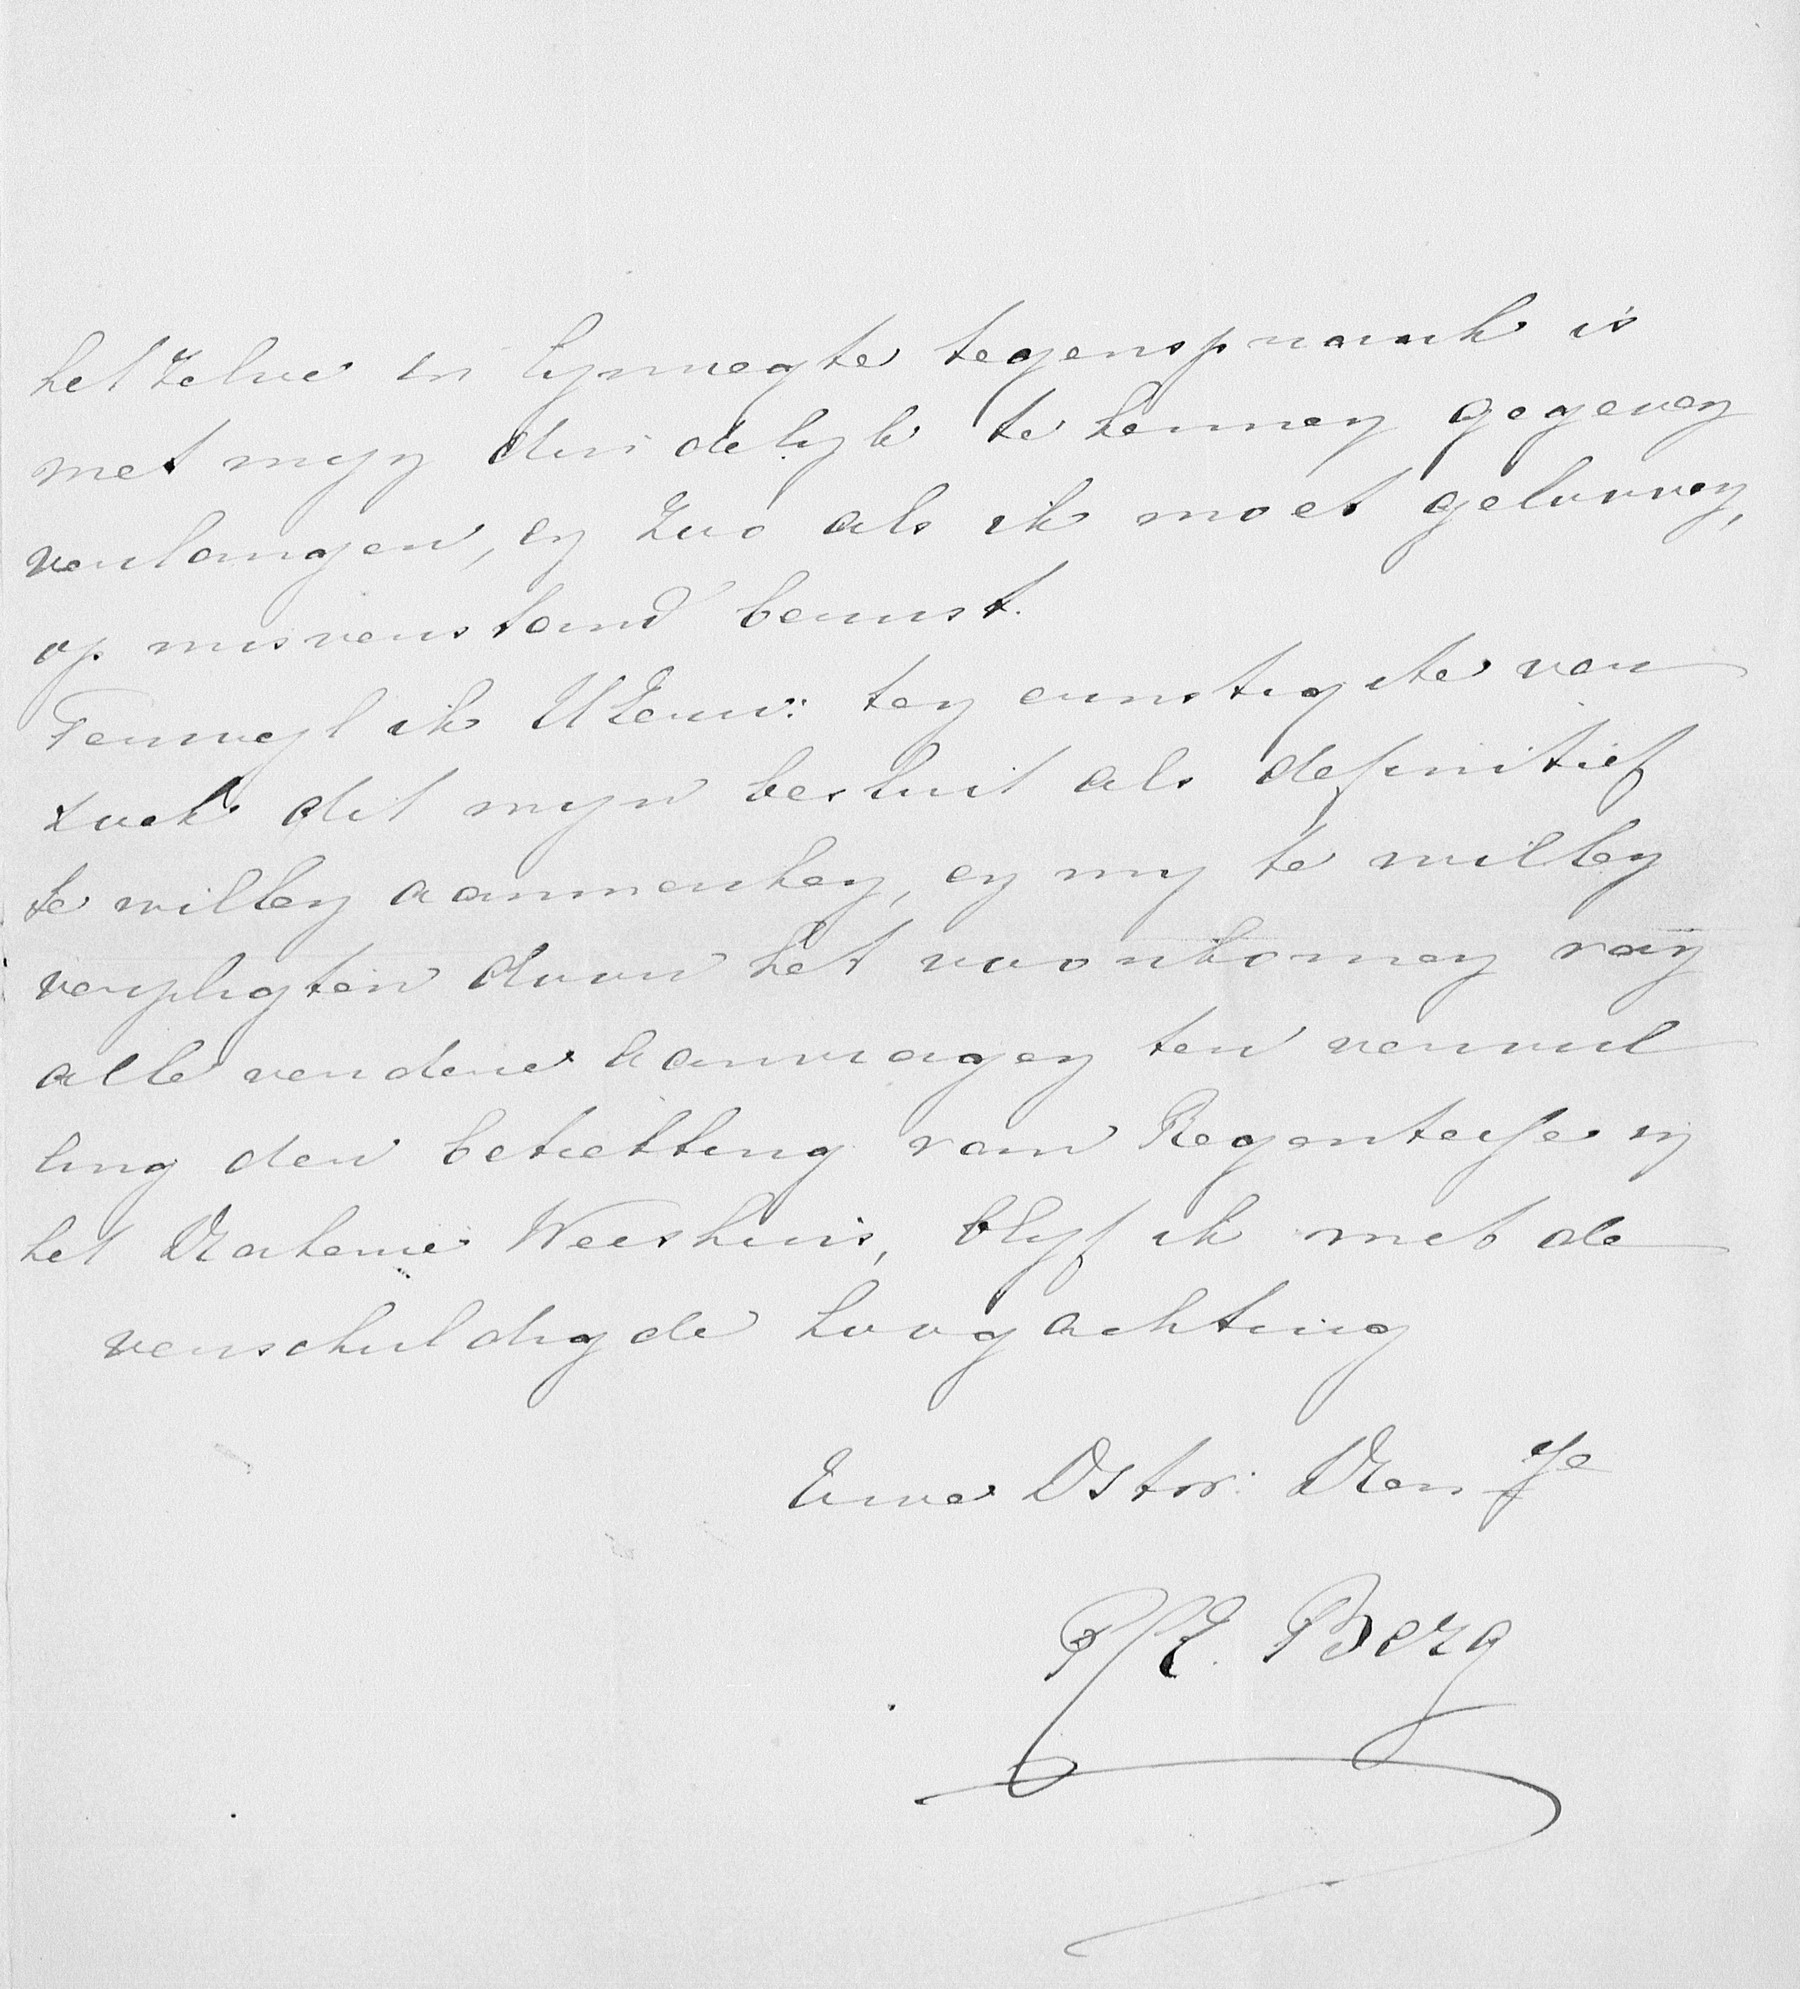 het zelve in lijnregte tegenspraak is
met mijn duidelijk te kennen gegeven
verlangen, en zoo als ik moet gelooven,
op misverstand berust.
Terwijl ik UZeer: ten ernstigste ver
zoek dit mijn besluit als definitief
te willen aanmerken, en mij te willen
verpligten door het voorkomen van
alle verdere aanvragen ter vervul
ling der betrekking van Regentesse in
het Weeshuis, blijf ik met de
verschuldigde hoogachting
Uwe Dstw:
Berg